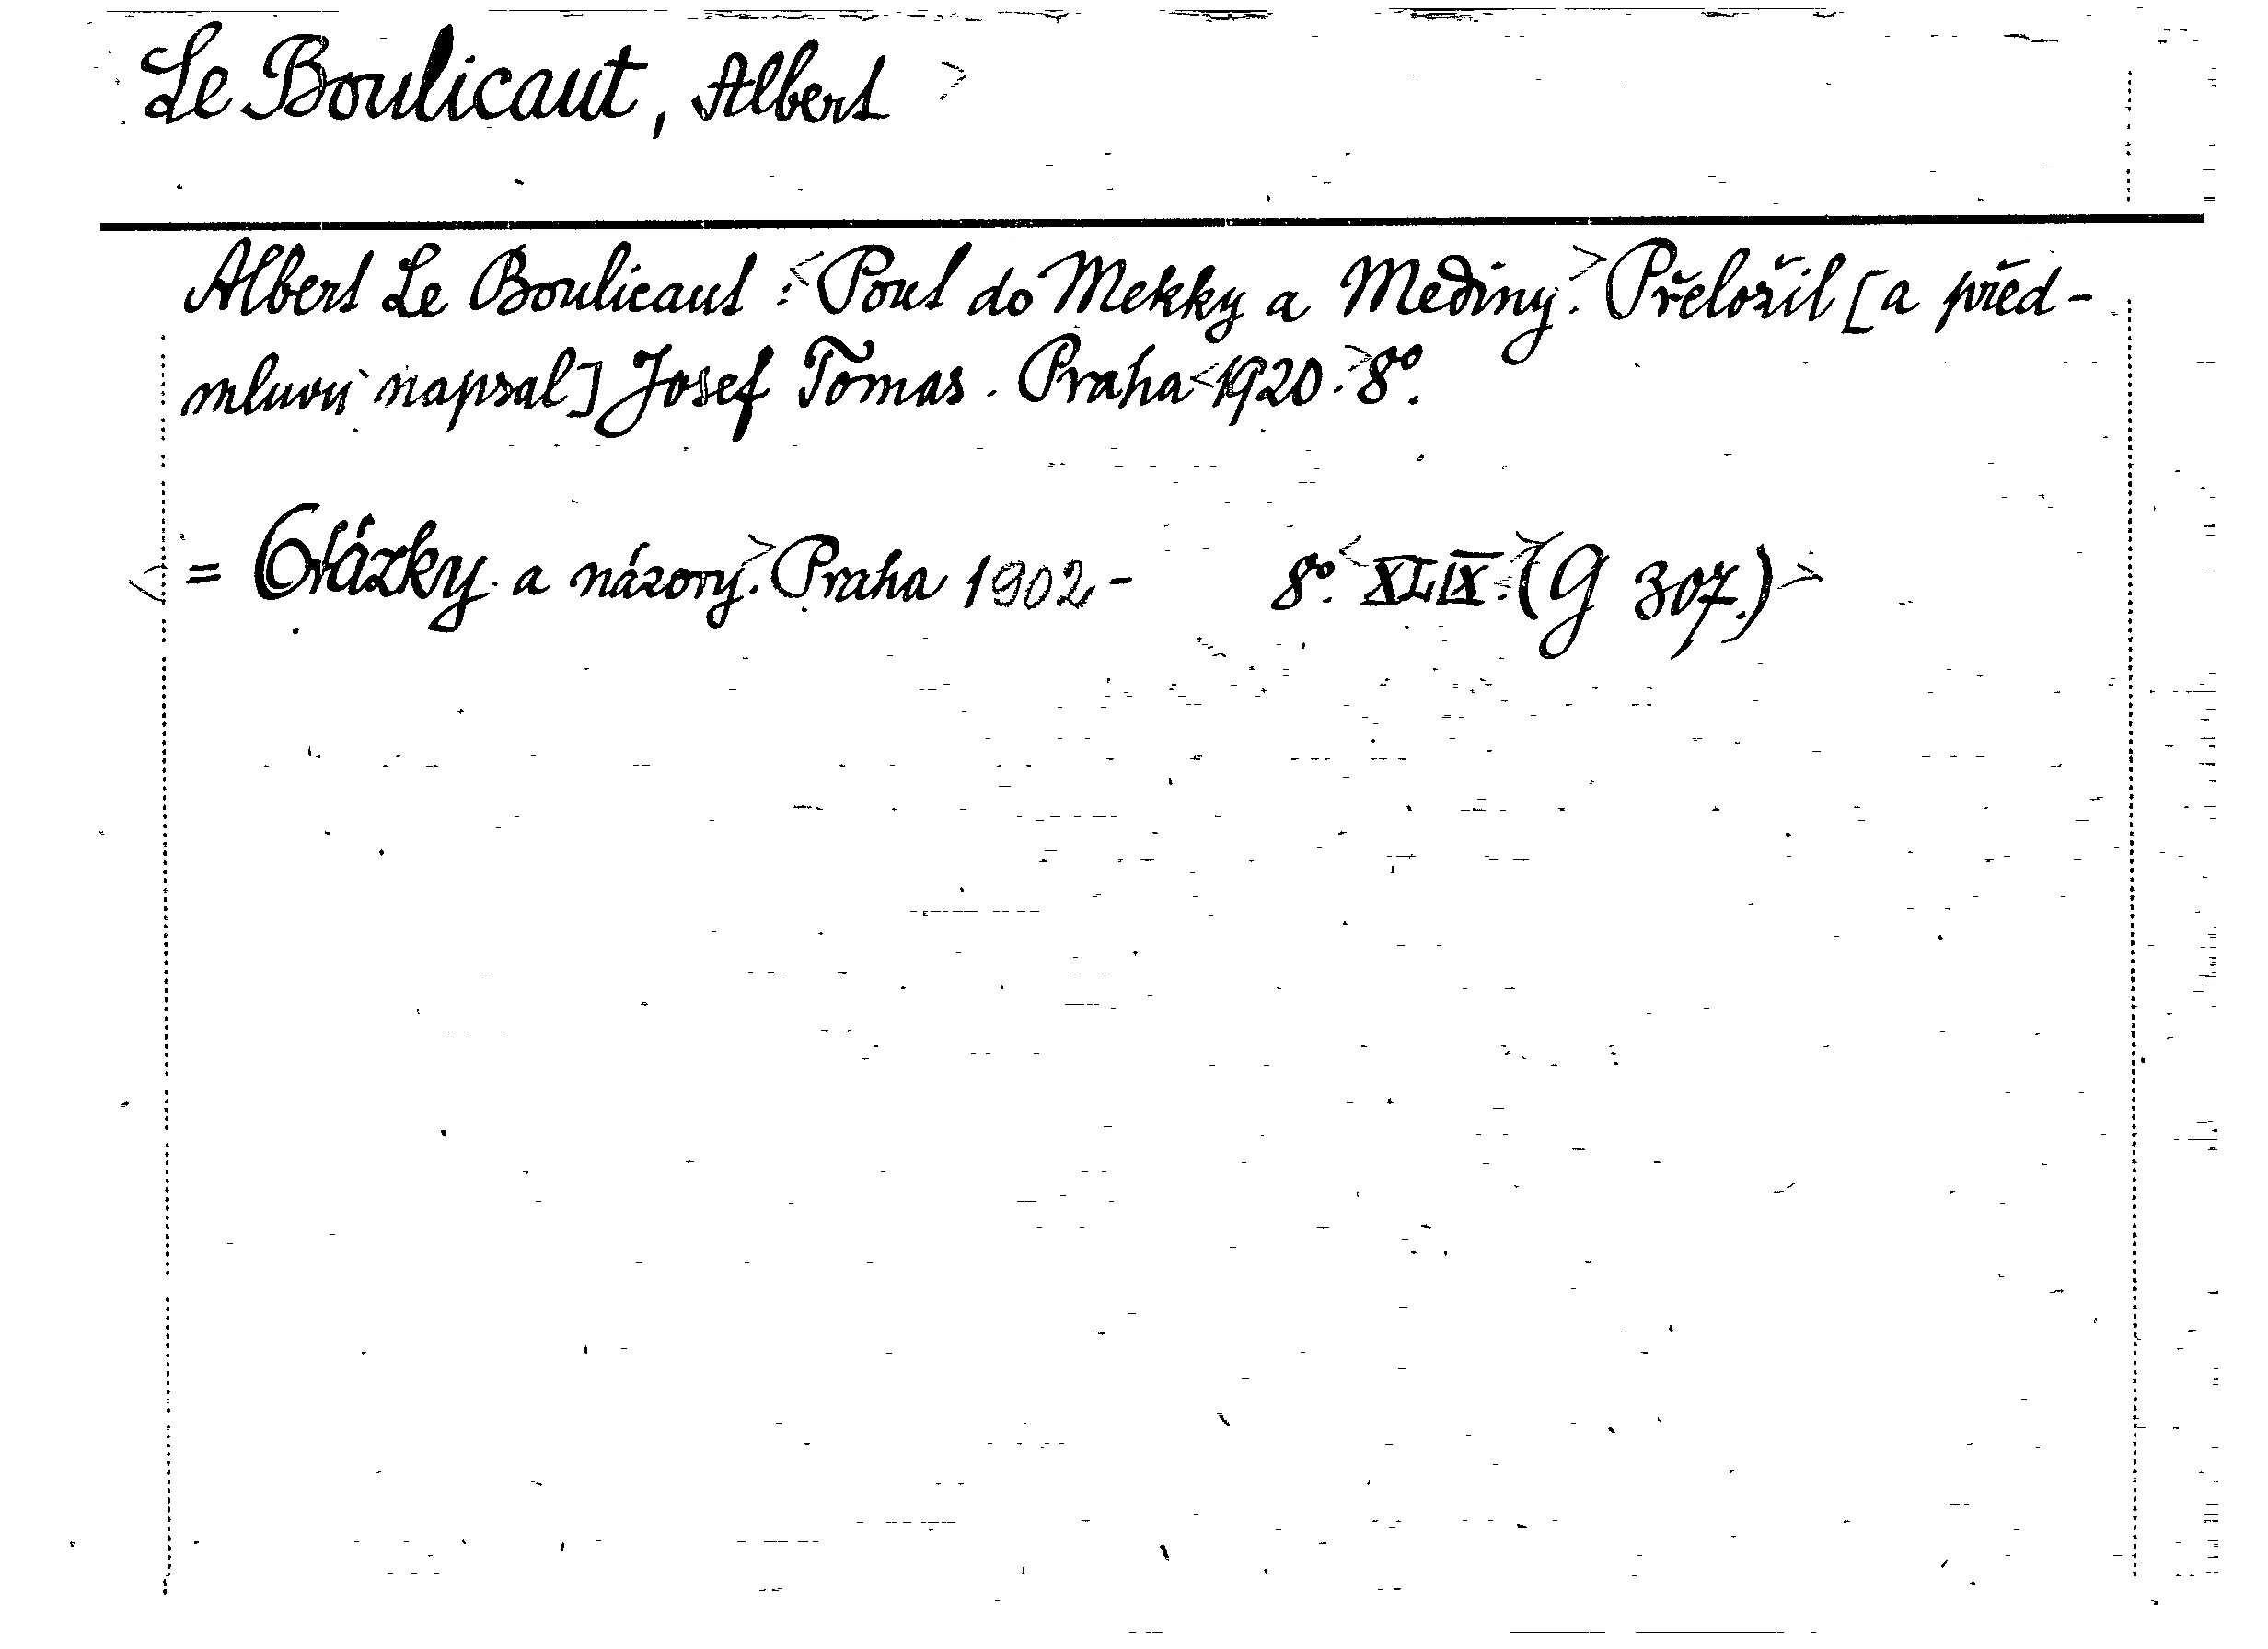 Le Boulicaut, Albert >
Albert Le Boulicaut :< Pout do Mekky a Mediny.> Přeložil [a před-
mluvu napsal] Josef Tomas. Praha <1920.> 8º.
<= Otázky a názory.> Praha 1902- 8º. <XLIX.> (G 307.) >